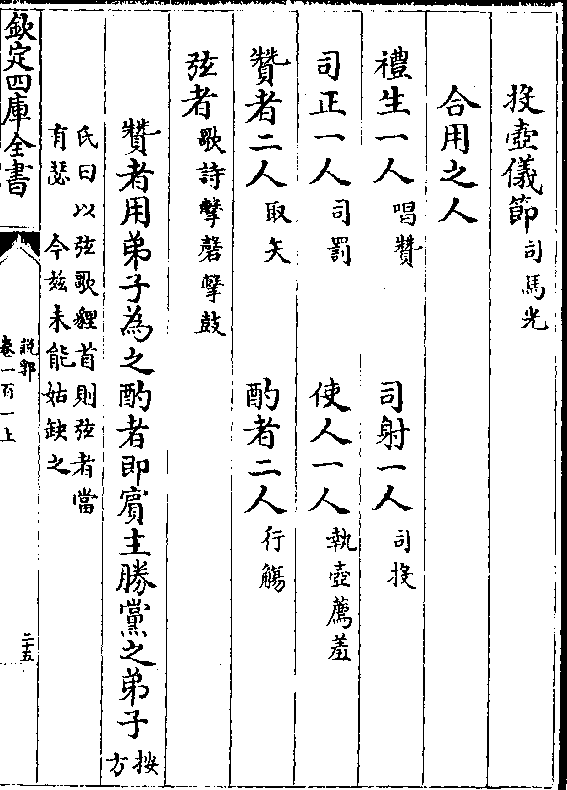 投壺儀節 司馬光
合用之人
禮生一人 唱贊 司射一人 司投
司正一人 司罰 使人一人 執壺薦羞
贊者二人 取矢 酌者二人 行觴
弦者 歌詩擊磬擊鼓
贊者用弟子為之酌者即賓主勝黨之弟子 按方
氏曰以弦歌貍首則弦者當
有瑟今兹未能姑缺之
欽定四庫全書
說郛
卷一百一上
二十五